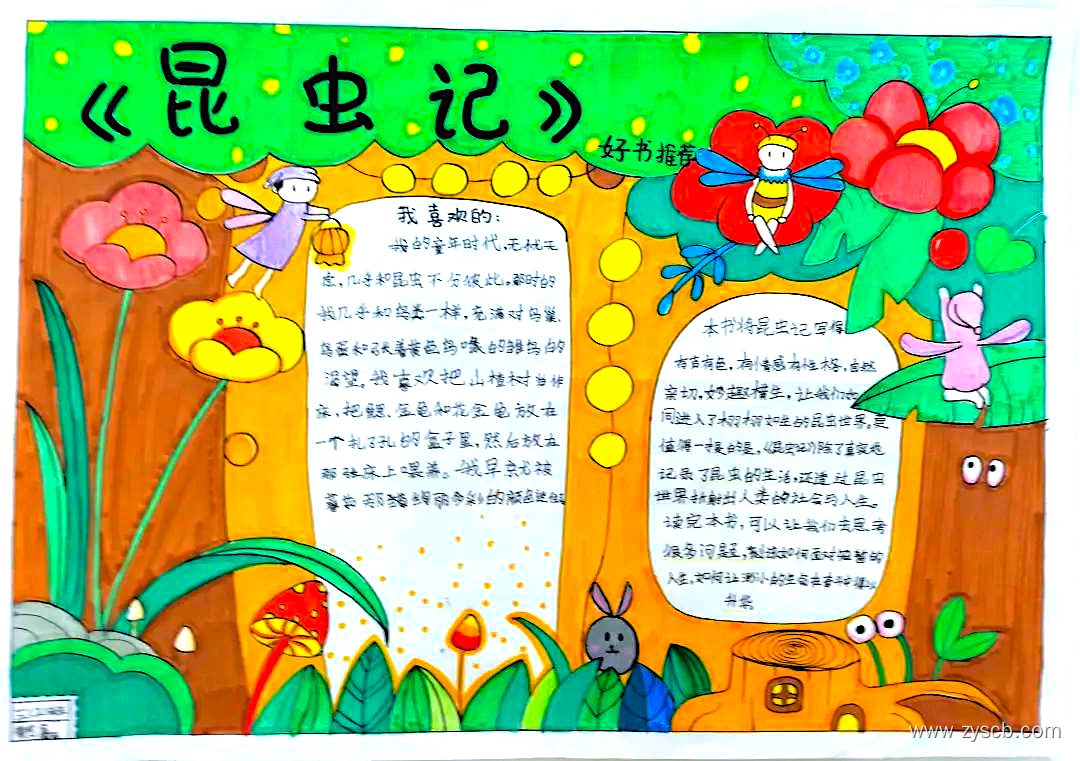 《昆虫记》
好书推荐
我喜欢的:
我的童年时代,无忧无
虑,几乎和昆虫不分彼此,那时的
我几乎和鸟类一样,充满对鸟巢、
鸟蛋和张着黄色鸟喙的雏鸟的
渴望。我喜欢把山楂树当作
床,把鳃金龟和花金龟放在
一个扎了孔的盒子里,然后放在
那张床上喂养。我早就被
蘑菇那绚丽多彩的颜色迷住
本书将昆虫记写得
有声有色,有情感有性格,自然
亲切,妙趣横生,让我们如
同进入了栩栩如生的昆虫世界,更
值得一提的是,《昆虫记》除了真实地
记录了昆虫的生活,还透过昆虫
世界折射出人类的社会与人生。
读完本书,可以让我们去思考
很多问题,如何面对短暂的
人生,如何让渺小的生命在奋斗中得以
升华
www.zyscb.com